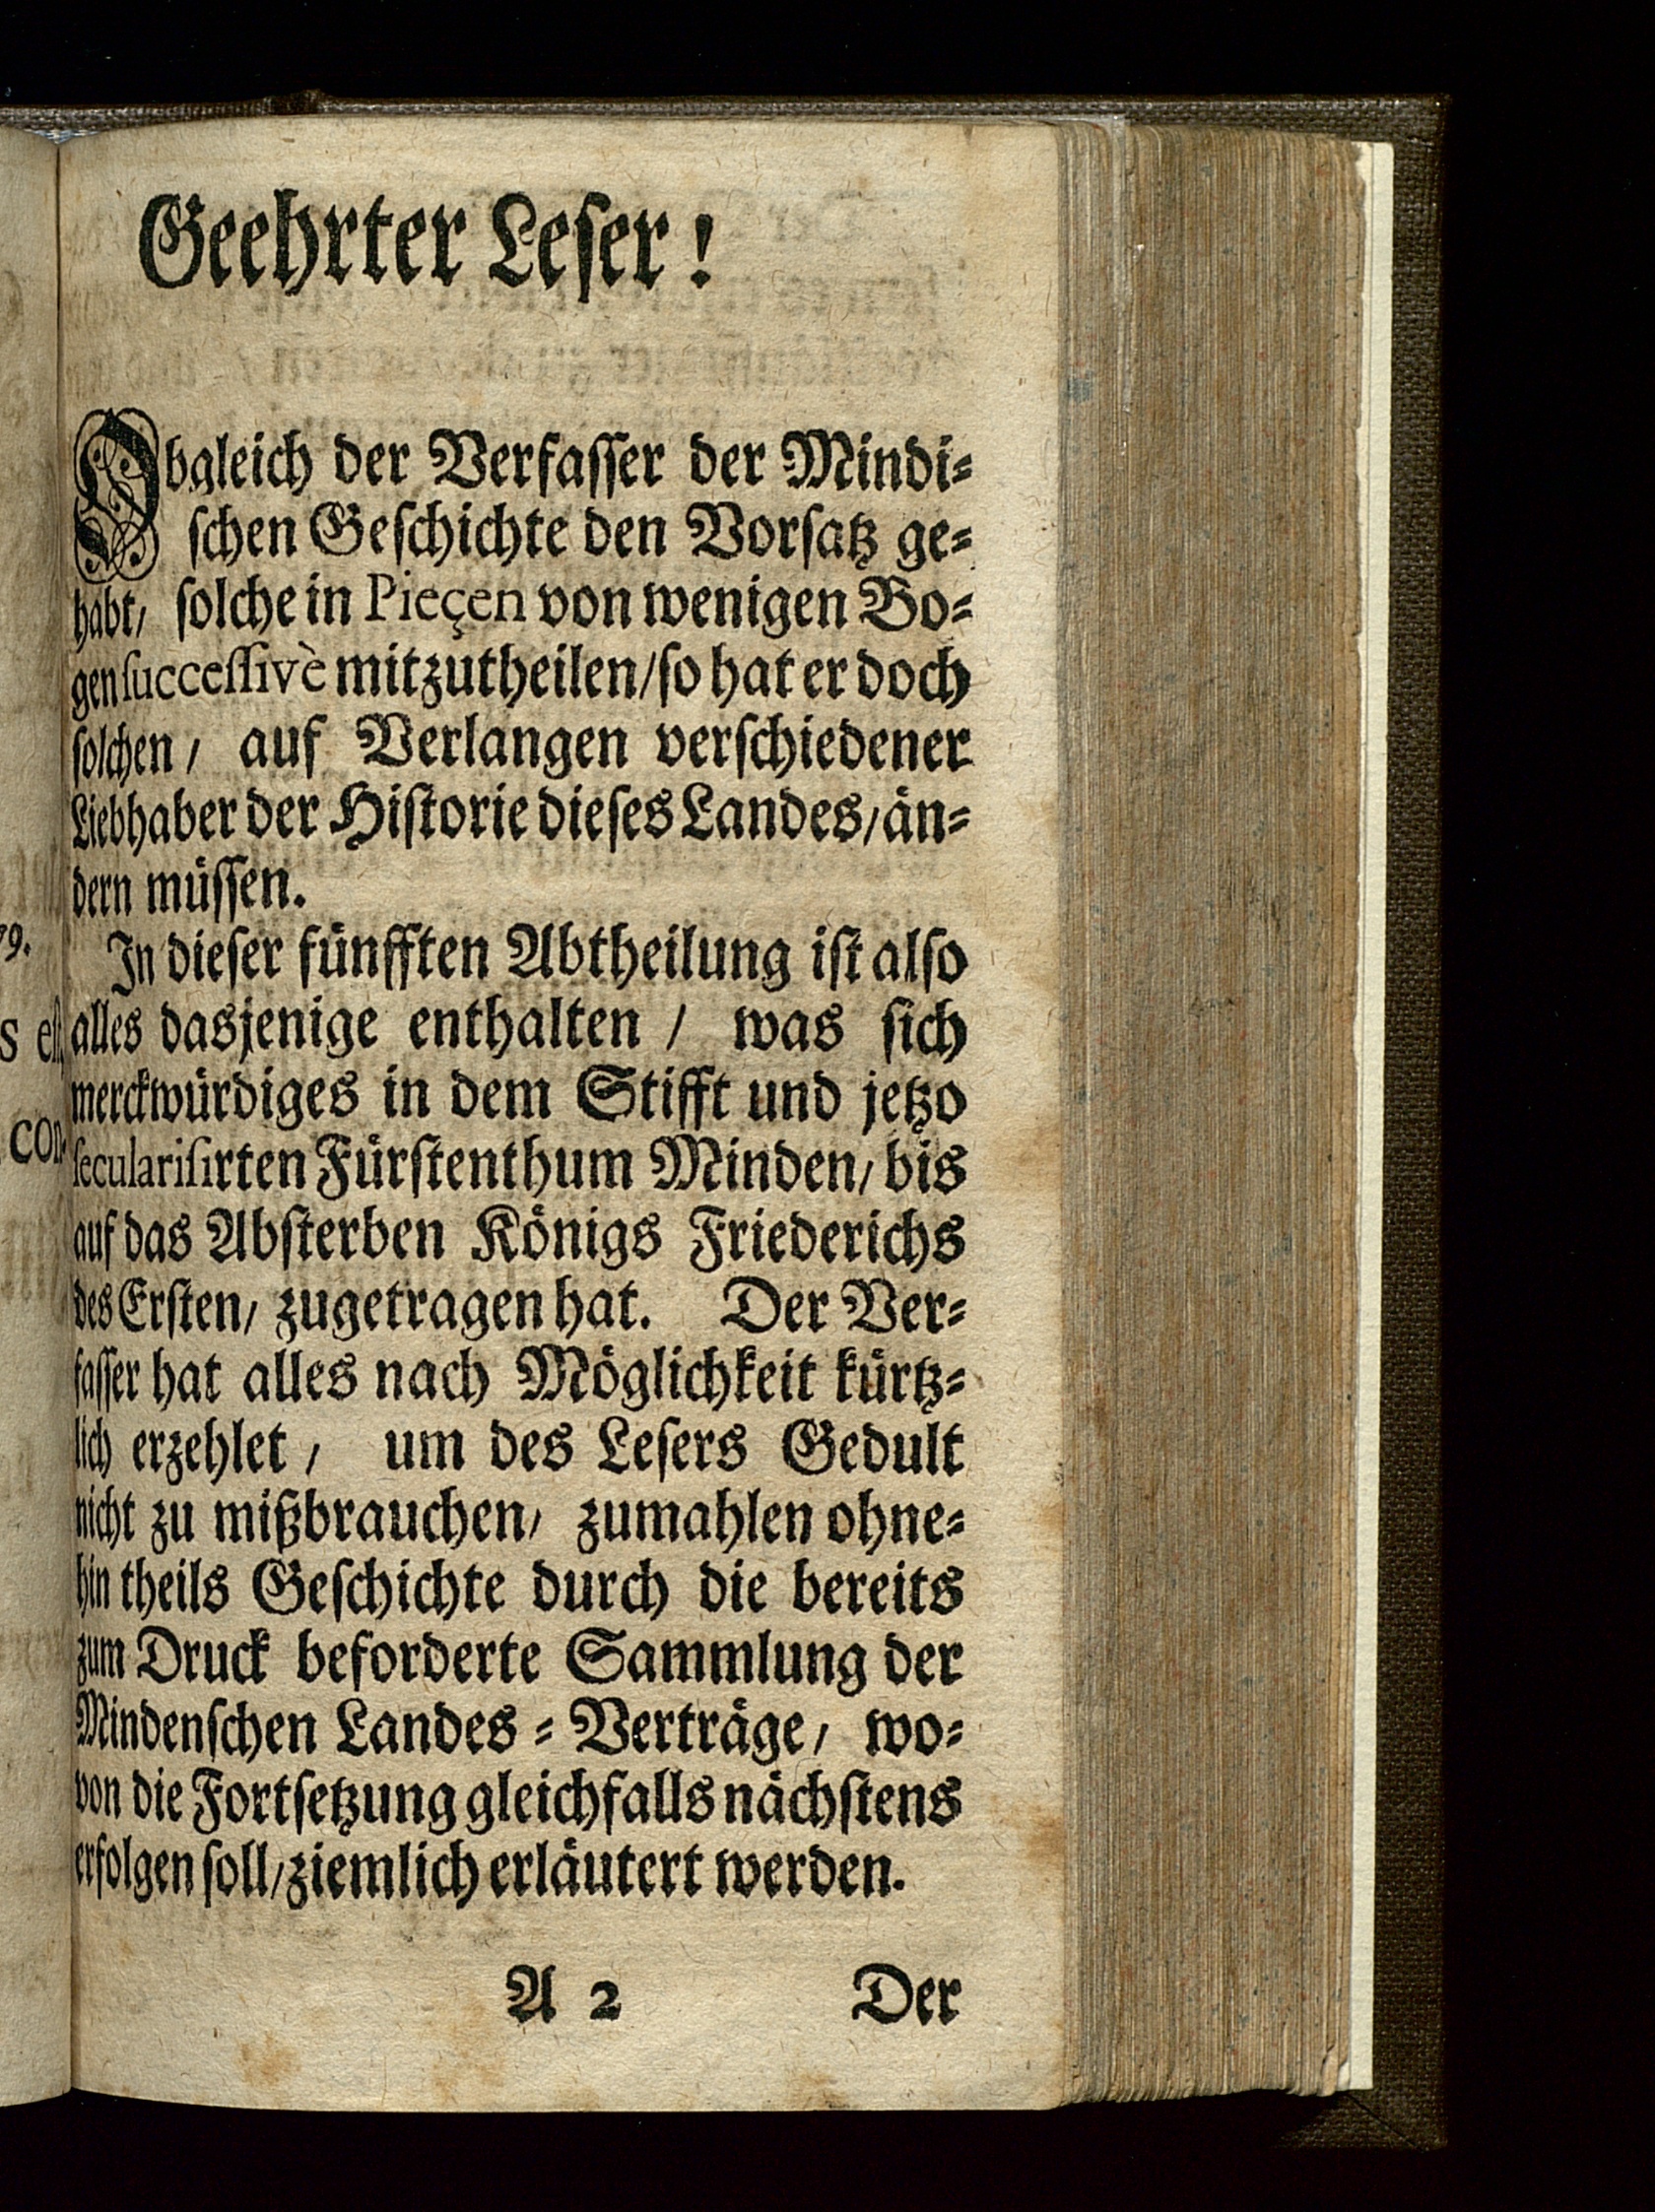 Geehrter Leſer!
Obgleich der Verfaſſer der Mindi⸗
ſchen Geſchichte den Vorſatz ge⸗
habt/ ſolche in Pieçen von wenigen Bo⸗
gen ſucceſſivè mitzutheilen/ ſo hat er doch
ſolchen/ auf Verlangen verſchiedener
Liebhaber der Hiſtorie dieſes Landes/ än⸗
dern müſſen.
In dieſer fünfften Abtheilung iſt alſo
alles dasjenige enthalten / was ſich
merckwürdiges in dem Stifft und jetzo
ſeculariſirten Fürſtenthum Minden/ bis
auf das Abſterben Königs Friederichs
des Erſten/ zugetragen hat. Der Ver⸗
faſſer hat alles nach Möglichkeit kürtz⸗
lich erzehlet/ um des Leſers Gedult
nicht zu mißbrauchen/ zumahlen ohne⸗
hin theils Geſchichte durch die bereits
zum Druck beforderte Sammlung der
Mindenſchen Landes⸗Verträge/ wo⸗
von die Fortſetzung gleichfalls nächſtens
erfolgen ſoll/ ziemlich erläutert werden.
A 2 Der